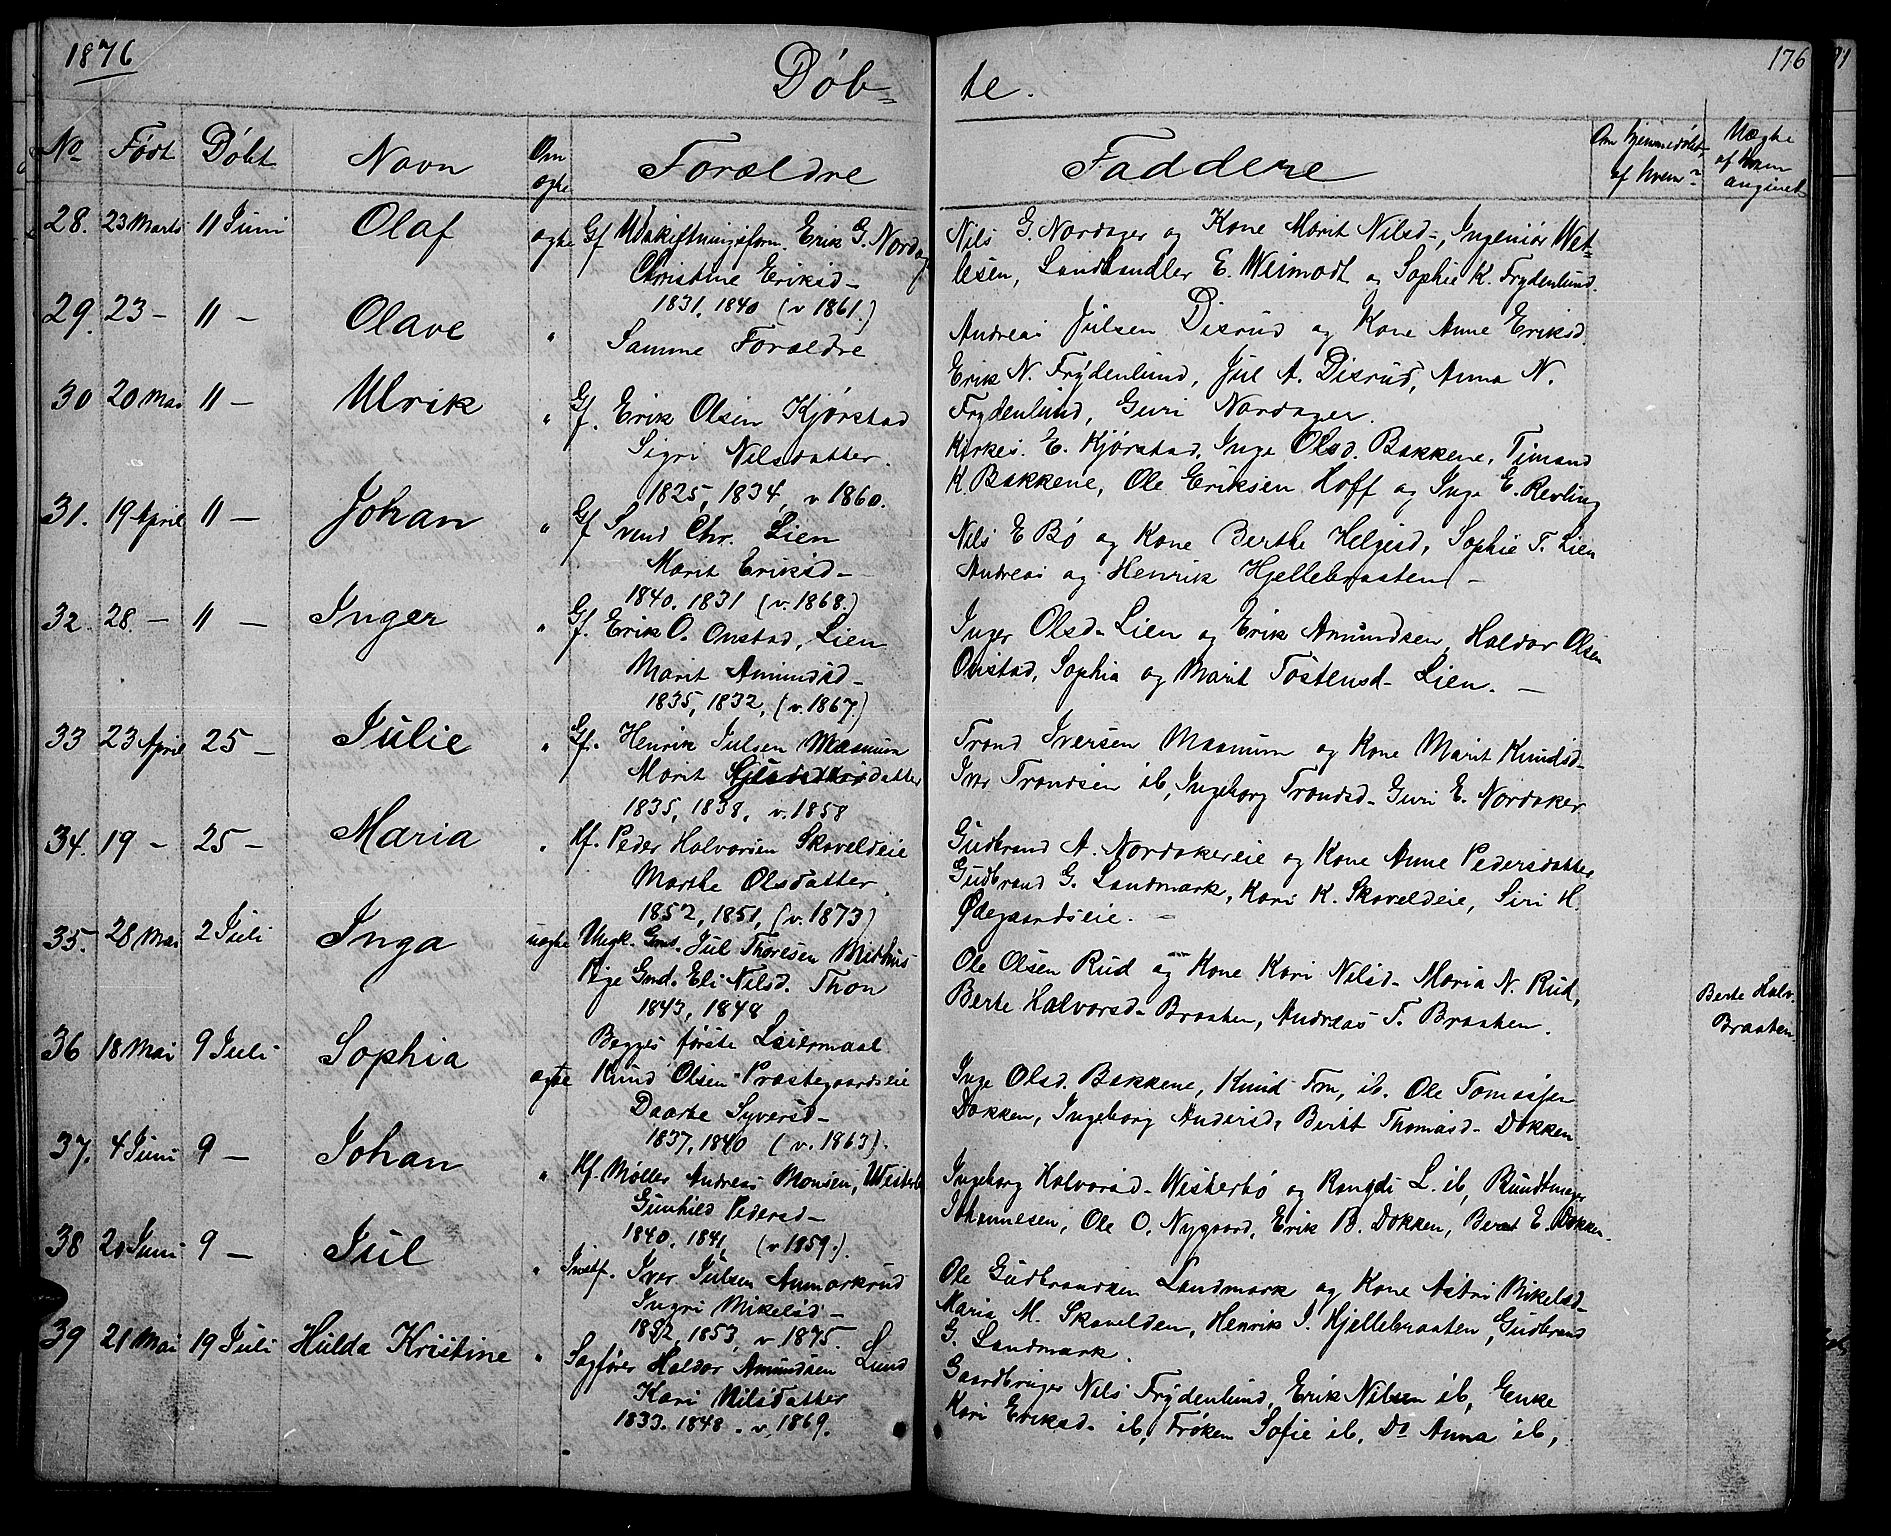 1876
Døb-
te.
176
No Født Døbt Navn Om ægte Forældre Faddere Om hjemmedøbt, af hvem? Uægte af hvem angivet
28. 23 Marts 11 Juni Olaf ægte Gf Udskiftningsform. Erik G. Nordag
Christine Eriksd-
1831, 1840 (v 1861.)
Nils G. Nordager og Kone Marit Nilsd-, Ingeniør Wet-
lesen, Landhandler E. Weimodt og Sophie K. Frydenlund.
29. 23 - 11 - Olave " Samme Forældre
Andreas Julsen Disrud og Kone Anne Eriksd.
Erik N. Frydenlund, Jul A. Disrud, Anna N.
Frydenlund, Guri Nordager.
30 20 Mai 11 - Ulrik " Gf. Erik Olsen Kjørstad
Sigri Nilsdatter.
1825, 1834, v 1860.
Kirkes. E. Kjørstad, Inge Olsd. Bakkene, Timand
K. Bakkene, Ole Eriksen Hoff og Inge E. Revling
31. 19 April 11 - Johan " Gf Svend Chr. Lien
Marit Eriksd-
1840. 1831 (v. 1868.)
Nils E Bø og Kone Berthe Helgesd, Sophie T. Lien
Andreas og Henrik Hjellebraaten -
32. 28. - 11 - Inger " Gf. Erik O. Onstad, Lien
Marit Amundsd-
1835, 1832, (v. 1867.)
Inger Olsd- Lien og Erik Amundsen, Haldor Olsen
Onstad, Sophia og Marit Tostensd- Lien. -
33 23 April 25 - Julie " Gf. Henrik Julsen Maanum
Marit datter
1835, 1838, v. 1858
Trond Iversen Maanum og Kone Marit Knudsd-
Iver Trondsen ib, Ingeborg Trondsd- Guri E. Nordaker
34. 19 - 25 - Maria " Hf. Peder Halvorsen Skaveldeie
Marthe Olsdatter.
1852, 1851, (v. 1873)
Gudbrand A. Nordakereie og Kone Anne Pedersdatter
Gudbrand G. Landmark, Kari K. Skaveldeie, Siri H.
Ødegaardseie. -
35. 28 Mai 2 Juli Inga uægte Ungk. Gmd. Jul Thoresen
Pige Gmd. Eli Nilsd. Thon
1843, 1848
Begges første Leiermaal
Ole Olsen Rud og Kone Kari Nilsd- Maria N. Rud,
Berte Halvorsd- Braaten, Andreas T. Braaten.
Berte Halv.
Braaten.
36 18 Mai 9 Juli Sophia ægte Knud Olsen Præstegaardseie
Daarte Syversd-
1837, 1840 (v. 1863).
Inge Olsd. Bakkene, Knud Fm, ib. Ole Tomassen
Dokken, Ingeborg Andersd, Beritt Thomasd- Dokken
37. 4 Juni 9 - Johan " Hf. Møller Andreas Monsen, Westerb
Gunhild Pedersd-
1840. 1841, (v. 1859.)
Ingeborg Halvorsd- Westerbø og Rangdi L. ib,
Johannesen, Ole O. Nygaard, Erik B. Dokken, Berit E. Dokken.
38 20 Juni 9 - Jul " Indf. Iver Julsen Anmarkrud
Ingri Mikelsd-
1852, 1853, v 1875.
Ole Gudbrandsen Landmark og Kone Astri Mikelsd-
Maria M. Skavelden, Henrik J. Hjellebraaten, Gudbrand
G. Landmark.
39 21 Mai 19 Juli Hulda Kristine " Sagfører Haldor Amundsen Lund
Kari Nilsdatter
1833. 1848. v. 1869.
Gaardbruger Nils Frydenlund, Erik Nilsen ib, Enke
Kari Eriksd- ib, Frøken Sofie ib, Do Anna ib,